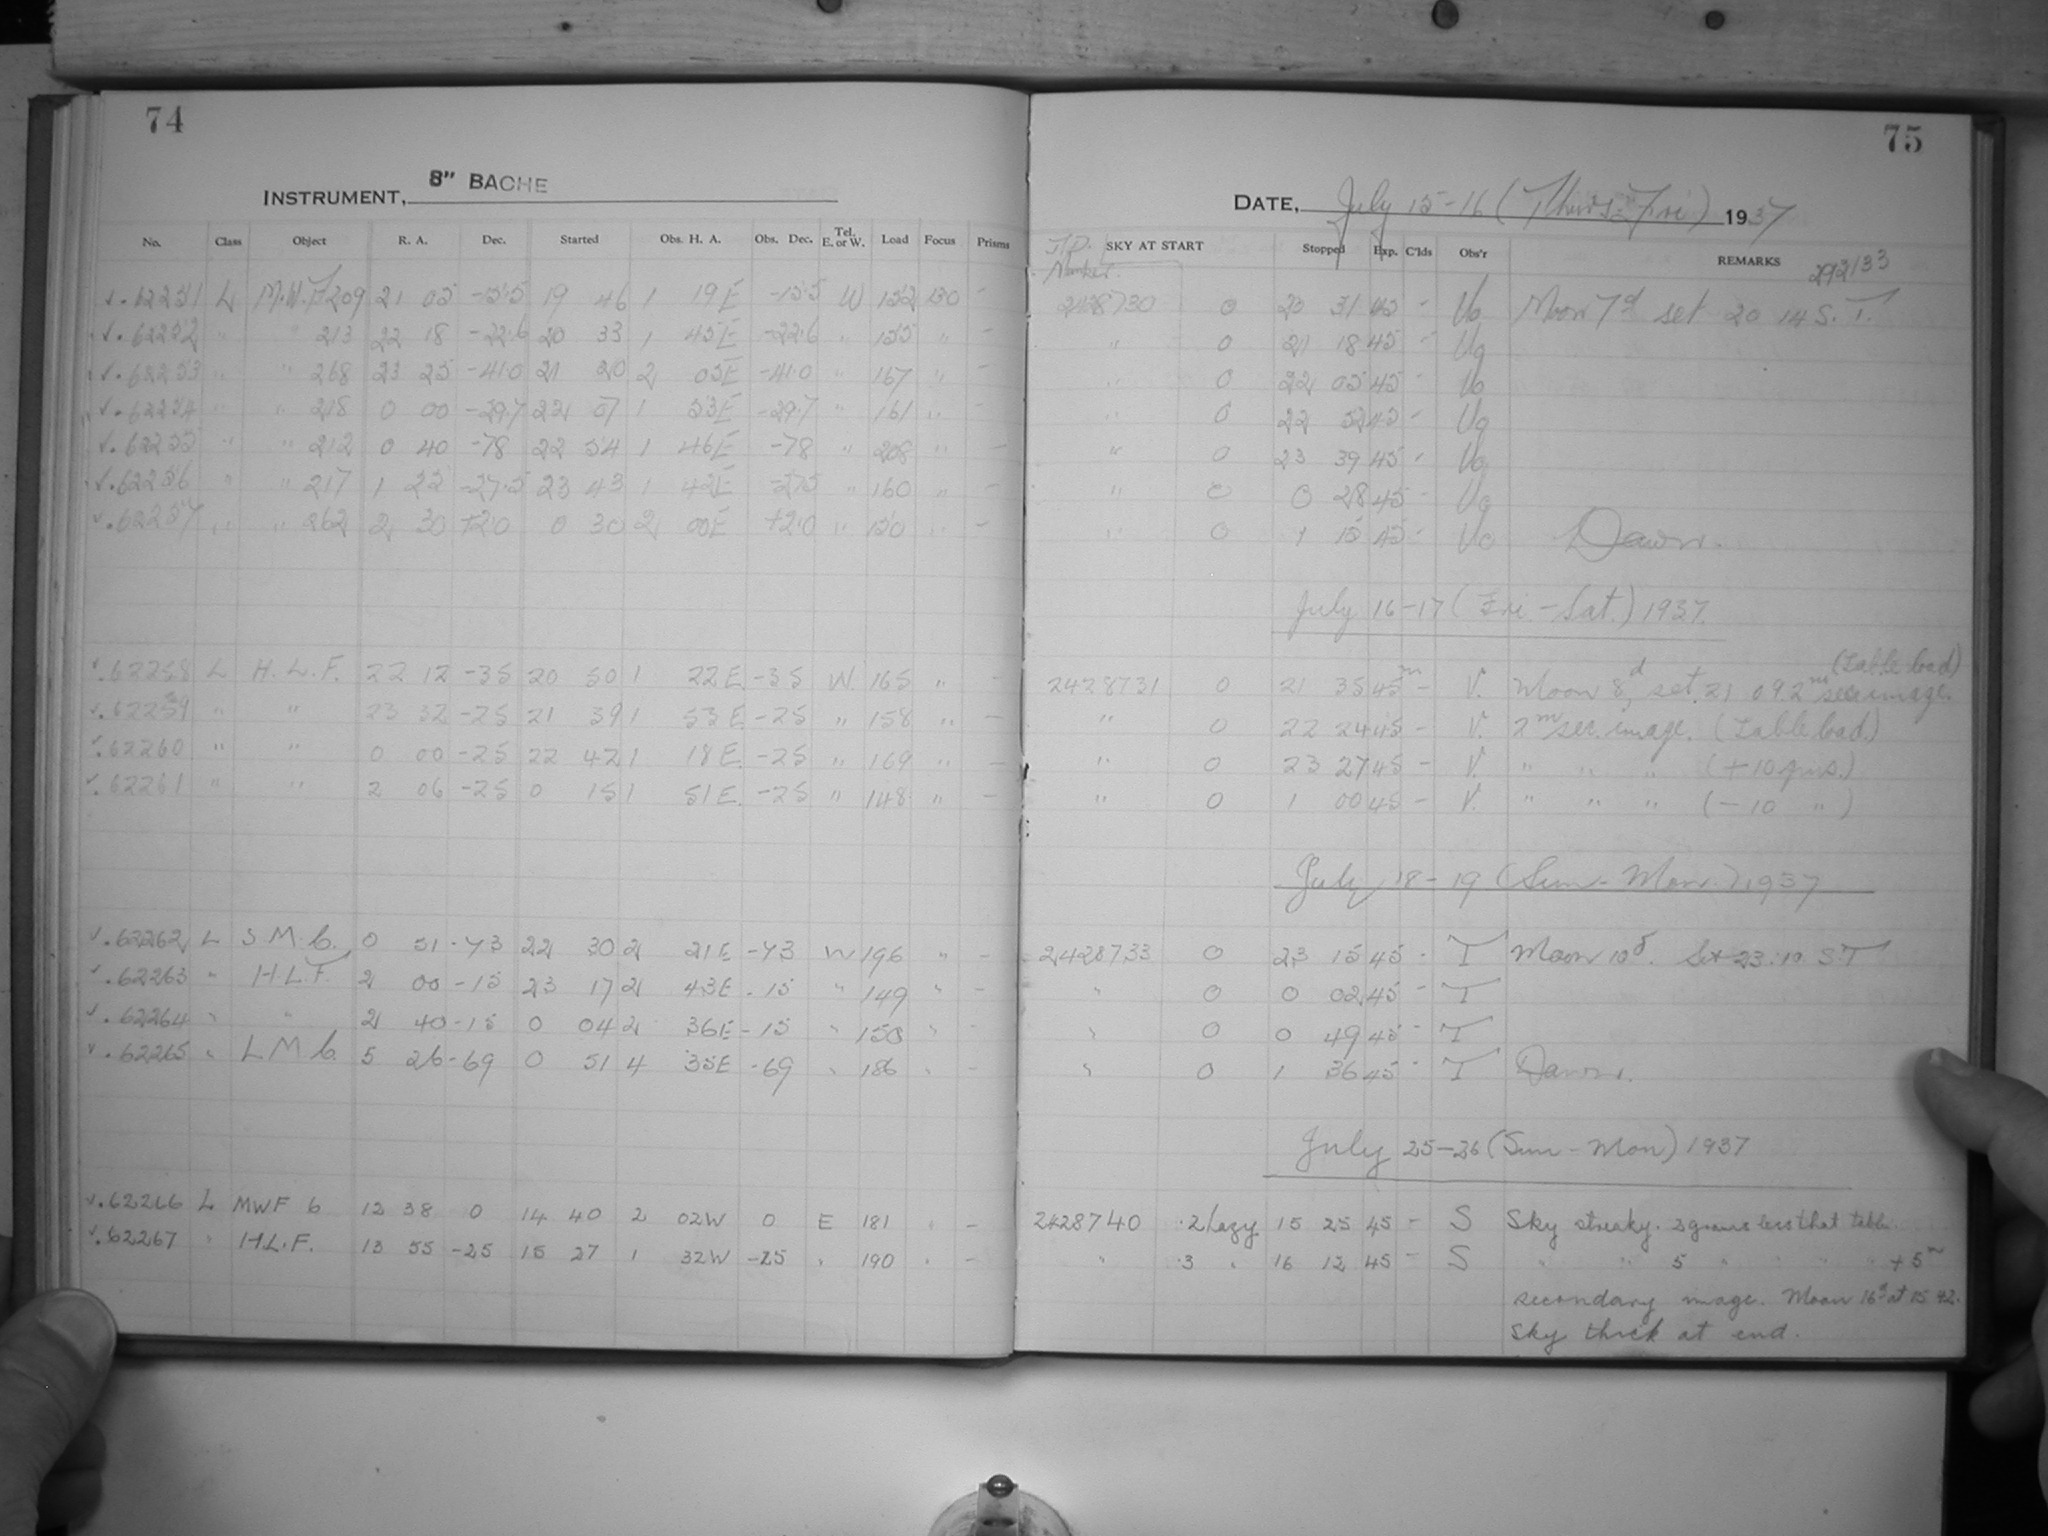 74
INSTRUMENT, 8" BACHE
No. Class Object R. A. Dec. Started Obs. H. A. Obs. Dec. Tel. E. or W. Load Focus Prisms
✓.62251 L M.W.F209 21 05 -15.5 19 46 1 19E -15.5 W 152 130 -
✓.62252 " " 213 22 18 -22.6 20 33 1 45E -22.6 " 155 " -
✓.62253 " " 268 23 25 -41.0 21 20 2 05E -41.0 " 167 " -
✓.62254 " " 218 0 00 -29.7 22 07 1 53E -29.7 " 161 " -
✓.62255 " " 212 0 40 -78 22 54 1 46E -78 " 208 " -
✓.62256 " " 217 1 25 -27.5 23 43 1 42E -27.5 " 160 " -
✓.62257 " " 262 2 30 +2.0 0 30 2 00E +2.0 " 150 " -
✓.62258 L H.L.F. 22 12 -35 20 50 1 22E -35 W 165 " -
✓.62259 " " 23 32 -25 21 39 1 53E -25 " 158 " -
✓.62260 " " 0 00 -25 22 42 1 18E -25 " 169 " -
✓.62261 " " 2 06 -25 0 15 1 51E -25 " 148 " -
✓.62262 L S.M.C. 0 51 -73 22 30 2 21E -73 W 196 " -
✓.62263 " H.L.F. 2 00 -15 23 17 2 43E -15 " 149 " -
✓.62264 " " 2 40 -15 0 04 2 36E -15 " 150 " -
✓.62265 " L M C. 5 26 -69 0 51 4 35E -69 " 186 " -
✓.62266 L MWF 6 12 38 0 14 40 2 02W 0 E 181 " -
✓.62267 " H.L.F. 13 55 -25 15 27 1 32W -25 " 190 " -
75
DATE, July 15-16 (Thurs-Fri) 1937
J.D. Number. SKY AT START Stopped Exp. C'lds Obs'r REMARKS
2428730 0 20 31 45 - Uo Moon 7d set 20 14 S.T.
" 0 21 18 45 - Uo
" 0 22 05 45 - Uo
" 0 22 52 45 - Uo
" 0 23 39 45 - Uo
" 0 0 28 45 - Uo
" 0 1 15 45 - Uo Dawn.
July 16-17 (Fri.-Sat.) 1937.
(table load)
2428731 0 21 35 45m - V. Moon 8d, set. 21 09. 2m sec. image.
" 0 22 24 45 - V. 2m sec. image. (table load.)
" 0 23 27 45 - V. " " " (+10 gms.)
" 0 1 00 45 - V. " " " (-10 " )
July 18-19 (Sun-Mon.) 1937
2428733 0 23 15 45 - T Moon 10d. Set 23.10 S.T
" 0 0 02 45 - T
" 0 0 49 45 - T
" 0 1 36 45 - T Dawn.
July 25-26 (Sun-Mon) 1937
2428740 .2 hazy 15 25 45 - S Sky streaky. 2 grams less that table.
" .3 " 16 12 45 - S " " 5 " " " " +5m
secondary image. Moon 16d at 15 42.
Sky thick at end.